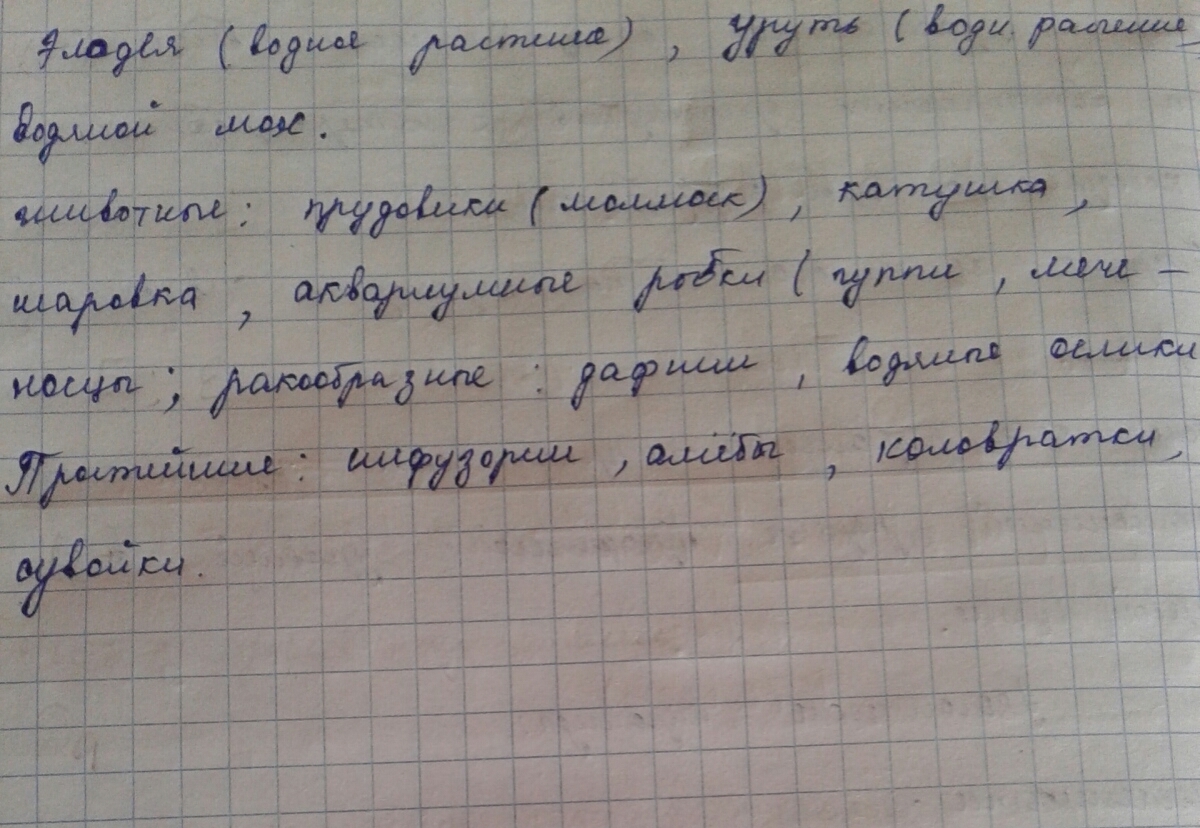 Элодея (водное растение), уруть (водн. растение
водяной мох.
животные: прудовики (моллюск), катушка,
шаровка, аквариумные рыбки (гуппи, мече-
носцы; ракообразные: дафнии, водяные ослики
Простейшие: инфузории, амёбы, коловратки,
сувойки.